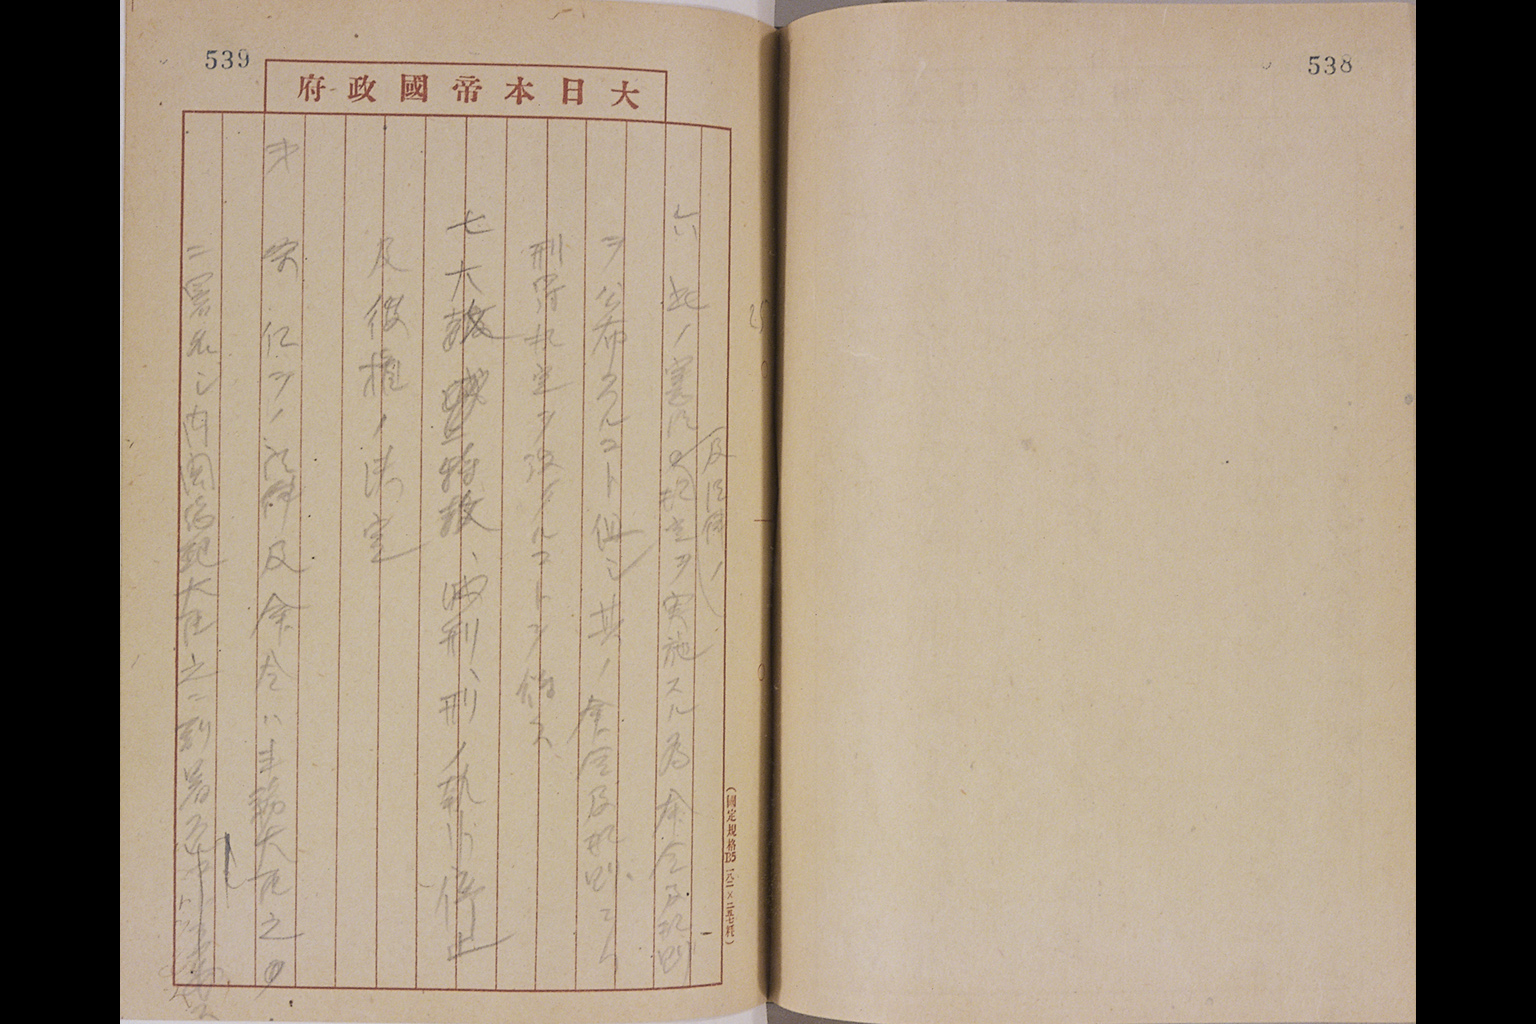 538
539
大日本帝國政府
六 此ノ憲法及法律ノ規定ヲ実施スル為命令及規則
ヲ公布スルコト但シ其ノ命令及規則ニハ
刑罰規定ヲ設クルコトヲ得ス
七 大赦、特赦、減刑、刑ノ執行停止
及復権ノ決定
才 条 凡ソノ法律及命令ハ主務大臣之
ニ署名シ内閣総理大臣之ニ副署
(國定規格B5一八二×二五七粍)